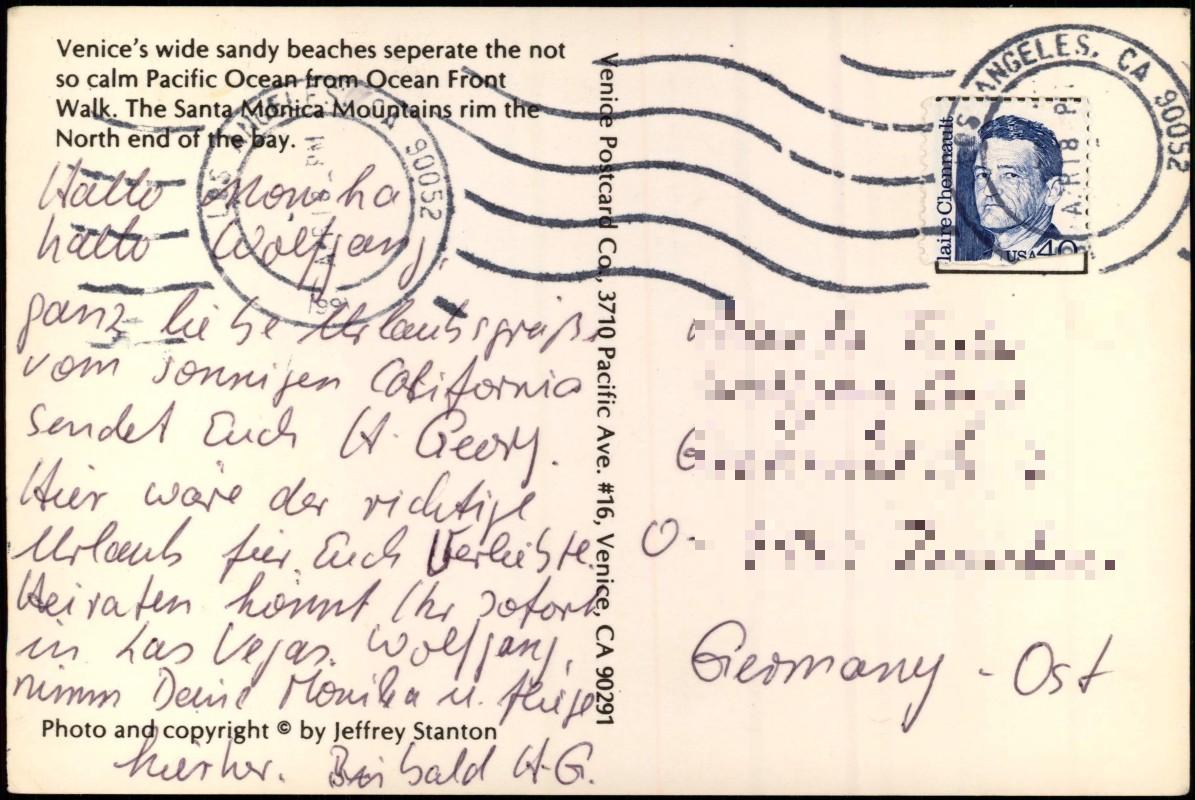 Venice's wide sandy beaches seperate the not
so calm Pacific Ocean from Ocean Front
Walk. The Santa Monica Mountains rim the
North end of the bay.
LOS ANGELES, CA 90052
PM
18 APR
1991
Hallo Monika
hallo Wolfgang,
ganz liebe Urlaubsgrüße
vom sonnigen California
sendet Euch H. Georg.
Hier wäre der richtige
Urlaub für Euch Verliebte.
Heiraten könnt Ihr sofort
in Las Vegas. Wolfgang,
nimm Deine Monika u. fliege
Photo and copyright © by Jeffrey Stanton
hierher. Bis bald H.G.
Venice Postcard Co., 3710 Pacific Ave. #16, Venice, CA 90291
ANGELES, CA 90052
APR 18
laire Chennault
USA 40
O-
Germany - Ost